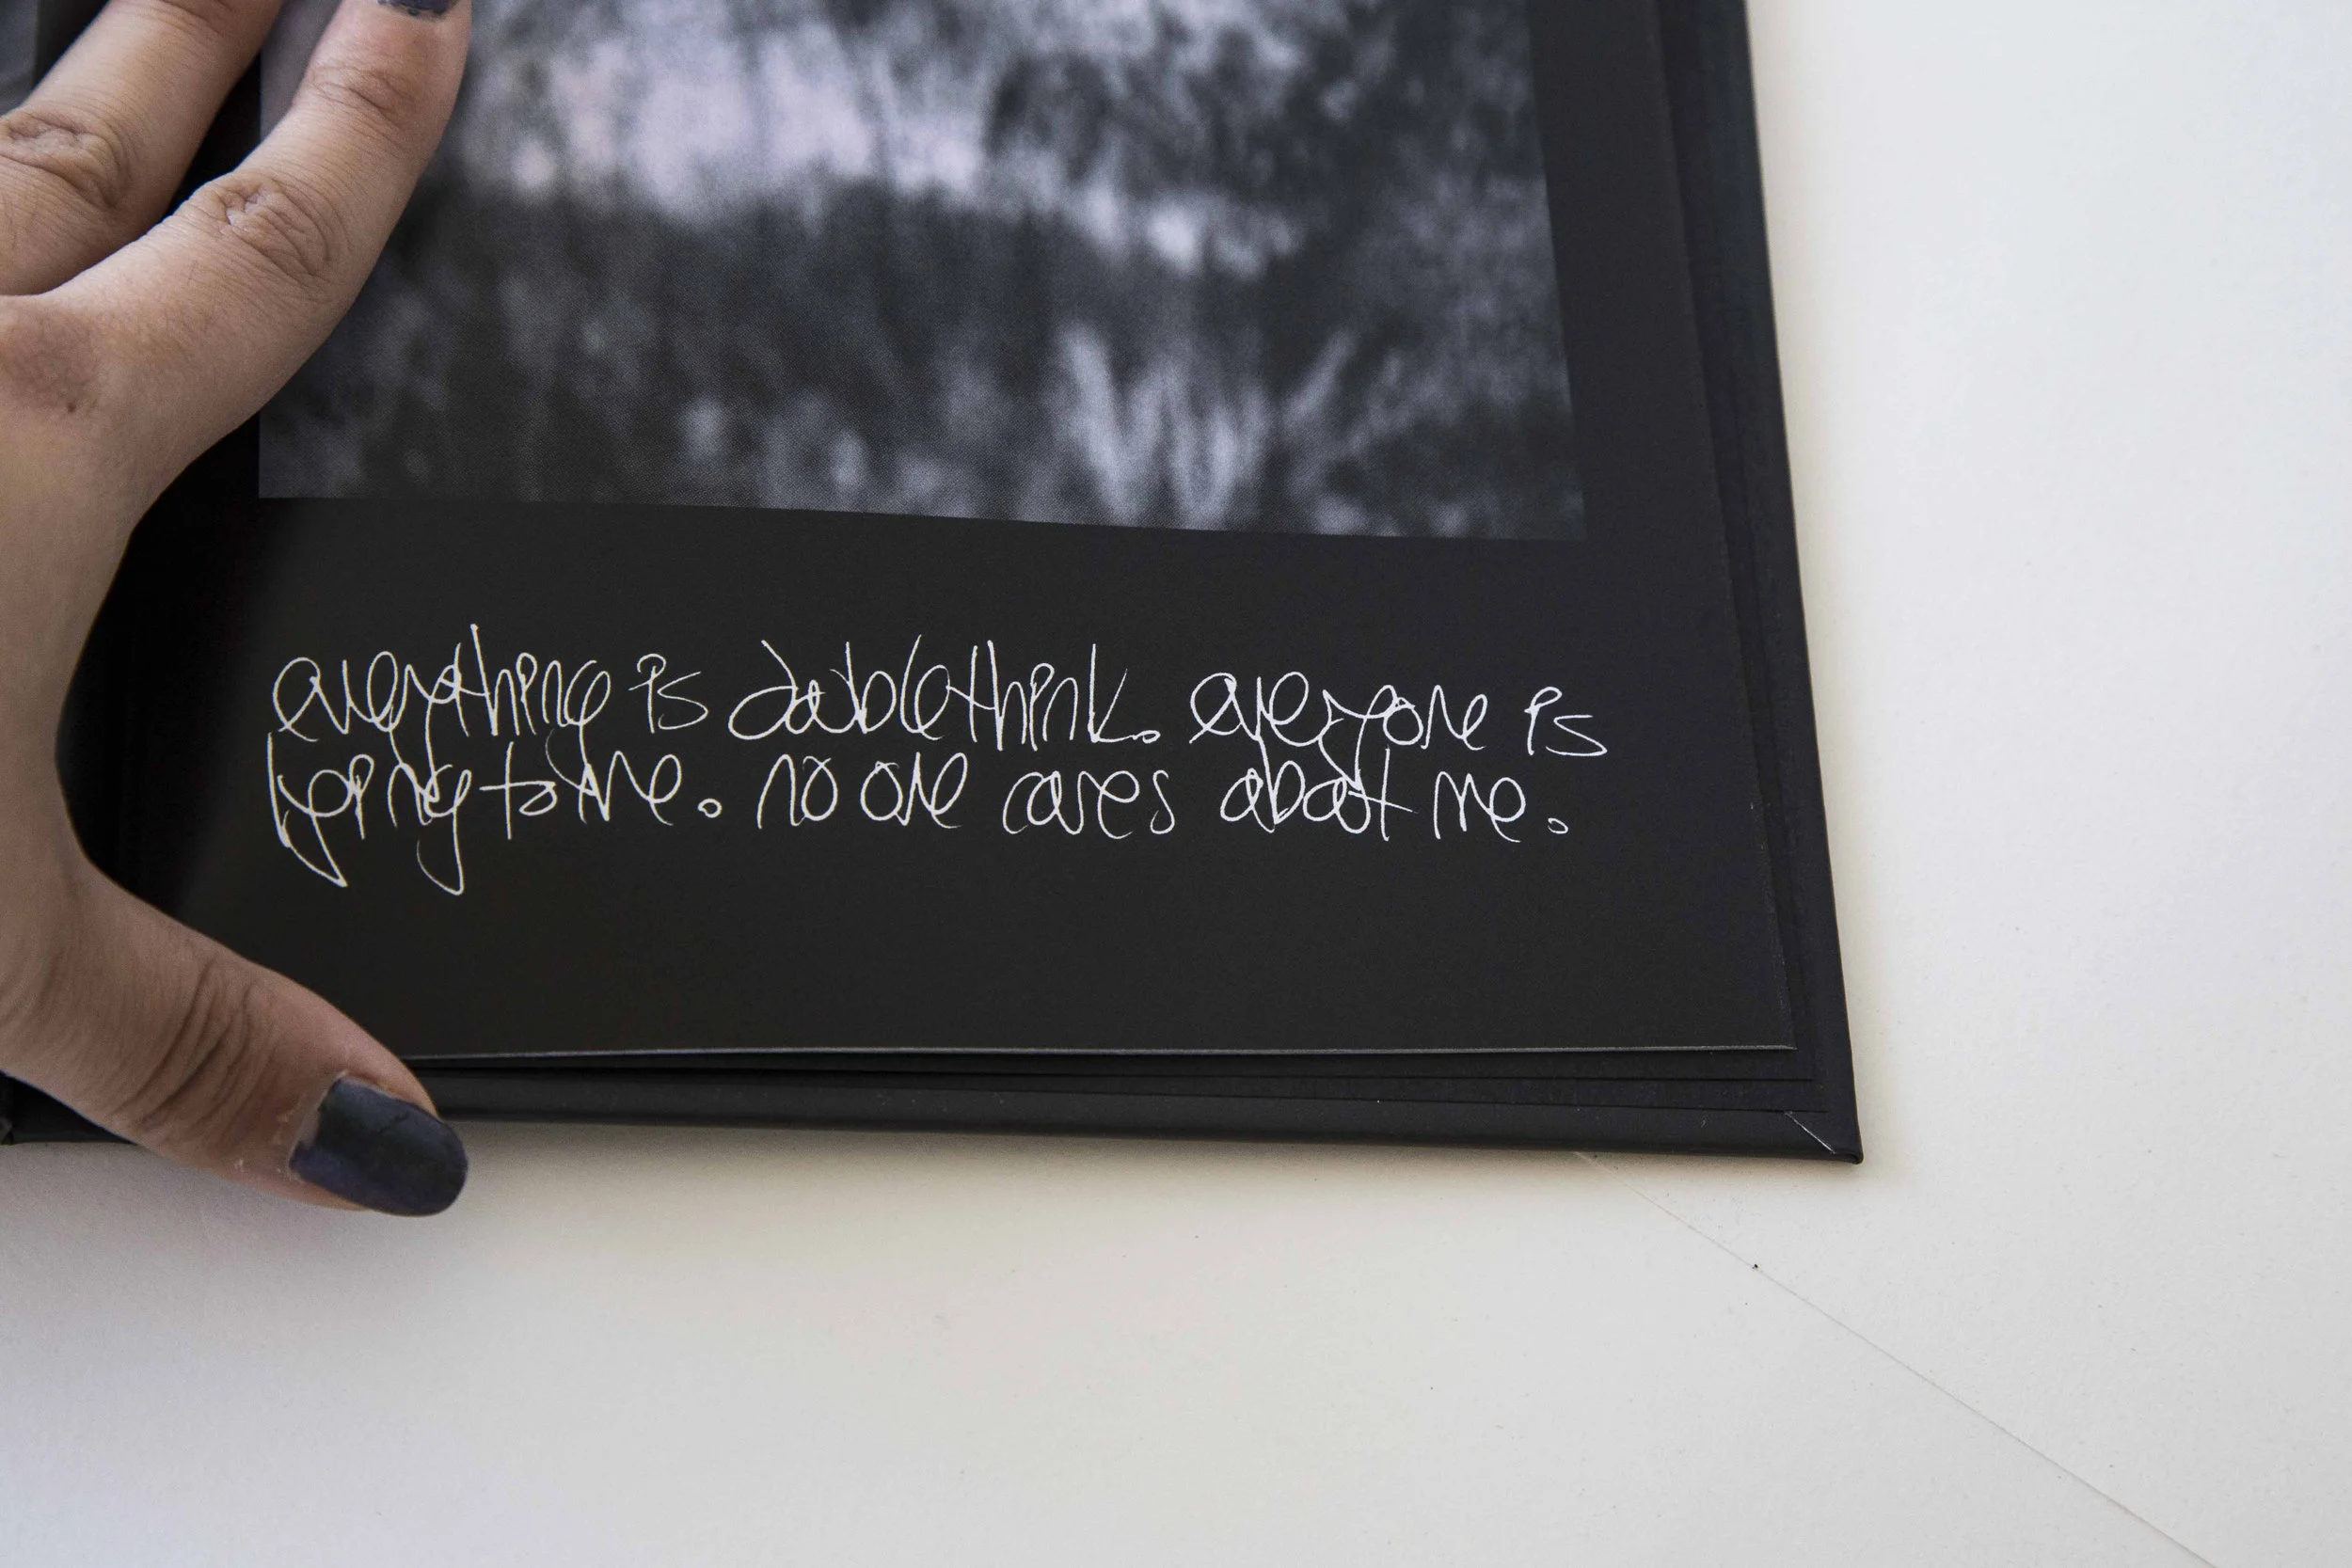 everything is doublethink. everyone is
lying to me. no one cares about me.